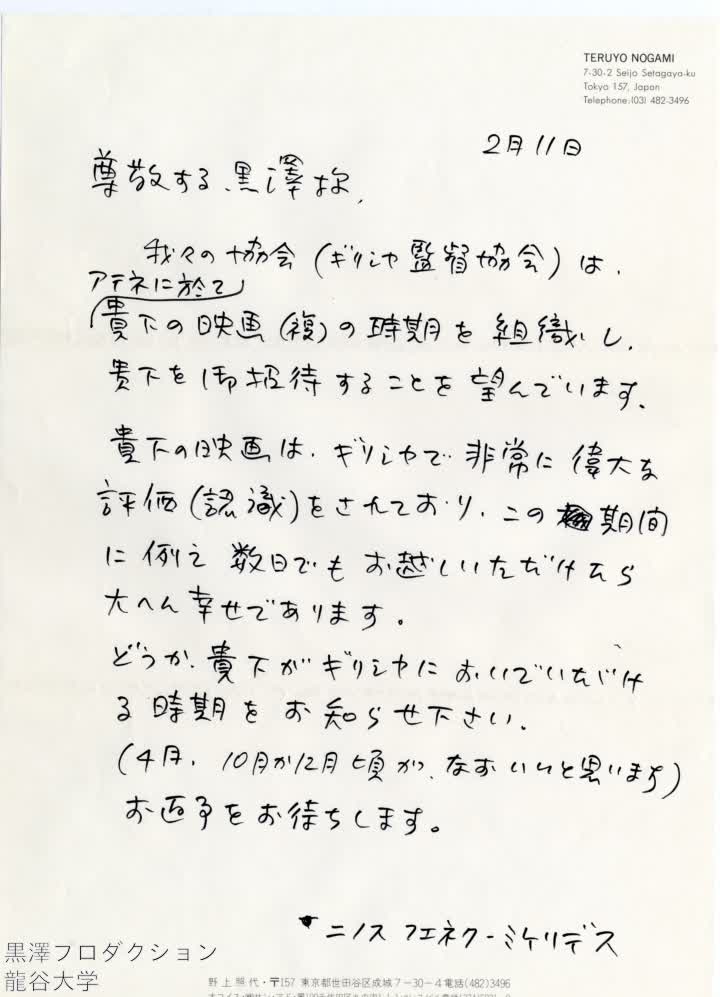 TERUYO NOGAMI
7-30-2 Seijo Setagaya-ku
Tokyo 157, Japan
Telephone:(03) 482-3496
2月11日
尊敬する、黒澤様、
我々の協会(ギリシヤ監督協会)は、
アテネに於て
貴下の映画(複)の時期を組織し、
貴下を御招待することを望んでいます、
貴下の映画は、ギリシヤで非常に偉大な
評価(認識)をされており、この期間
に例え数日でもお越しいただけたら
大へん幸せであります。
どうか、貴下がギリシヤにおいでいただけ
る時期をお知らせ下さい、
(4月、10月か12月頃がなおいいと思います)
お返事をお待ちします。
ニノス フエネク-ミケリデス
黒澤プロダクション
龍谷大学
野上照代・〒157 東京都世田谷区成城7-30-4電話(482)3496